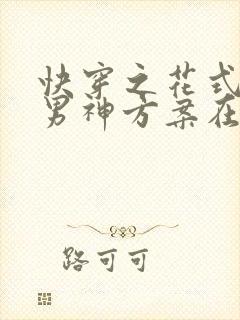 快穿之花式
男神方案在
路可可